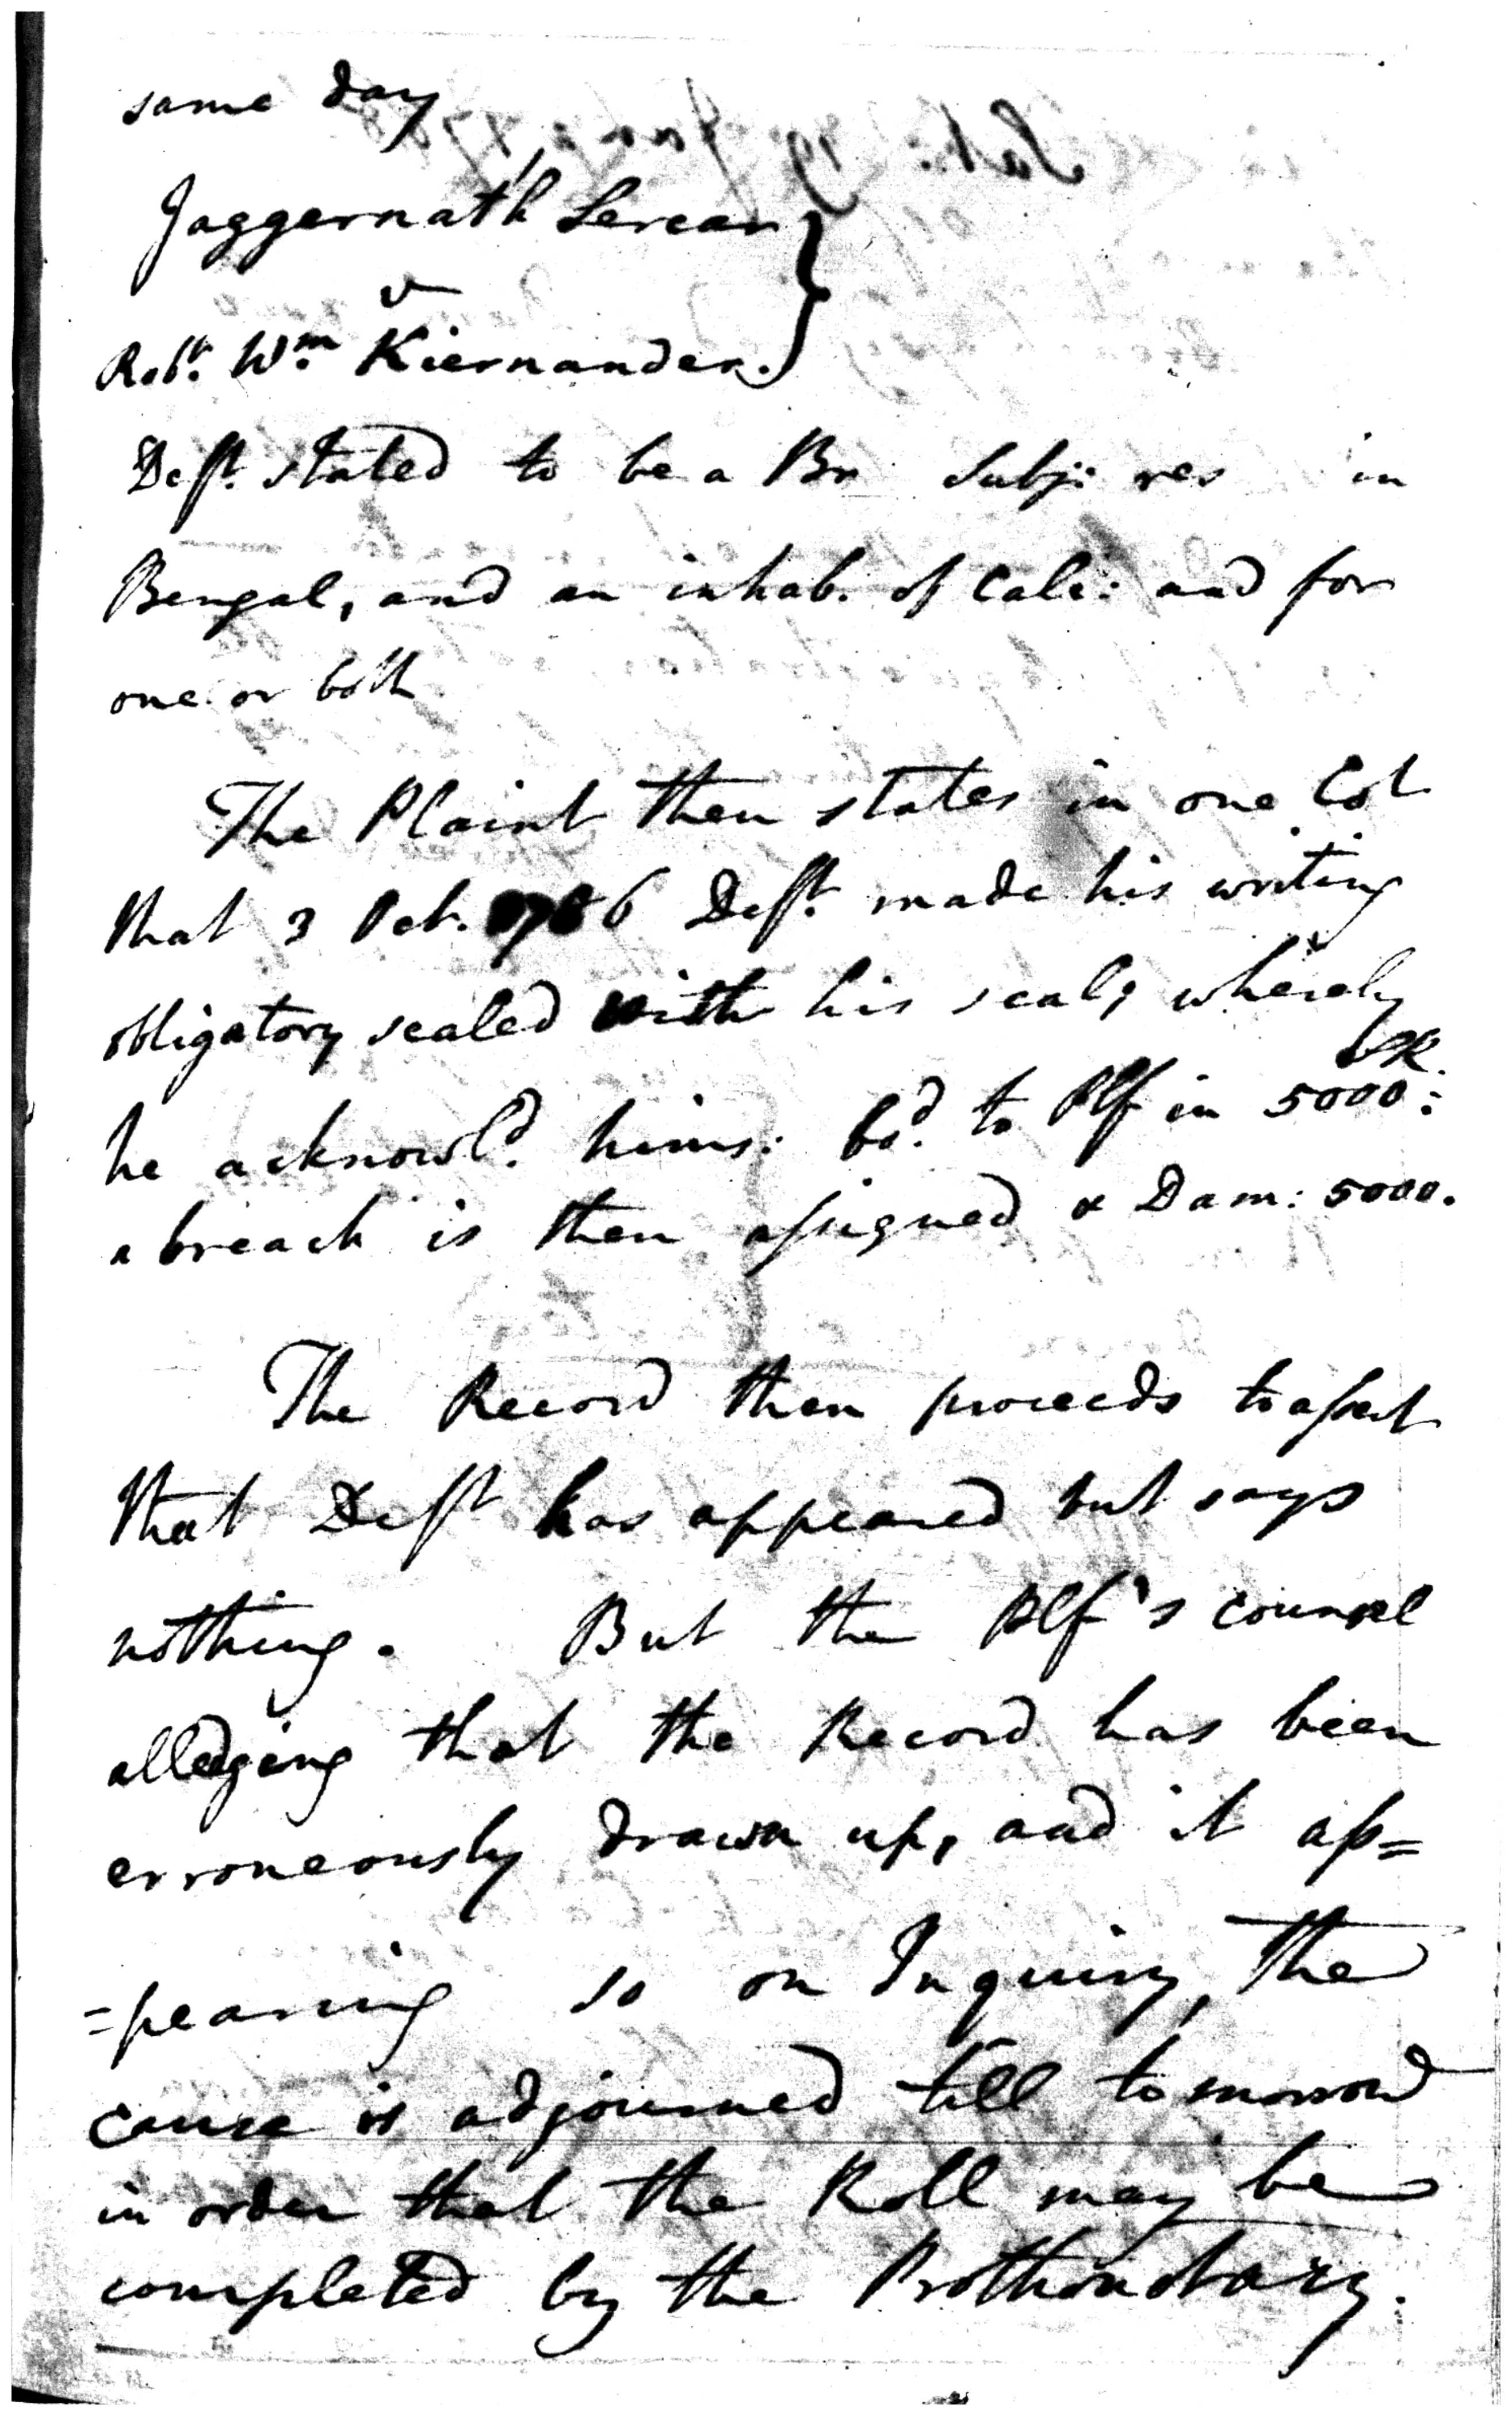 same day
Jaggernath Sercar
v
Robt. Wm. Kiernander.
Deft. stated to be a Br Subj: res in
Bengal, and an inhab. of Calc: and for
one or both
The Plaint then states in one Cot
that 3 Oct. 1786 Deft. made his writing
obligatory sealed with his seal, whereby
he acknowld. hims: bd. to Plf in 5000:
a breach is then assigned & Dam: 5000.
The Record then proceeds to assert
that Deft has appeared but says
nothing. But the Plf's counsel
alledging that the Record has been
erroneously drawn up, and it ap=
=pearing so on Inquiry, the
cause is adjourned till to morrow
in order that the Roll may be
completed by the Prothonotary.